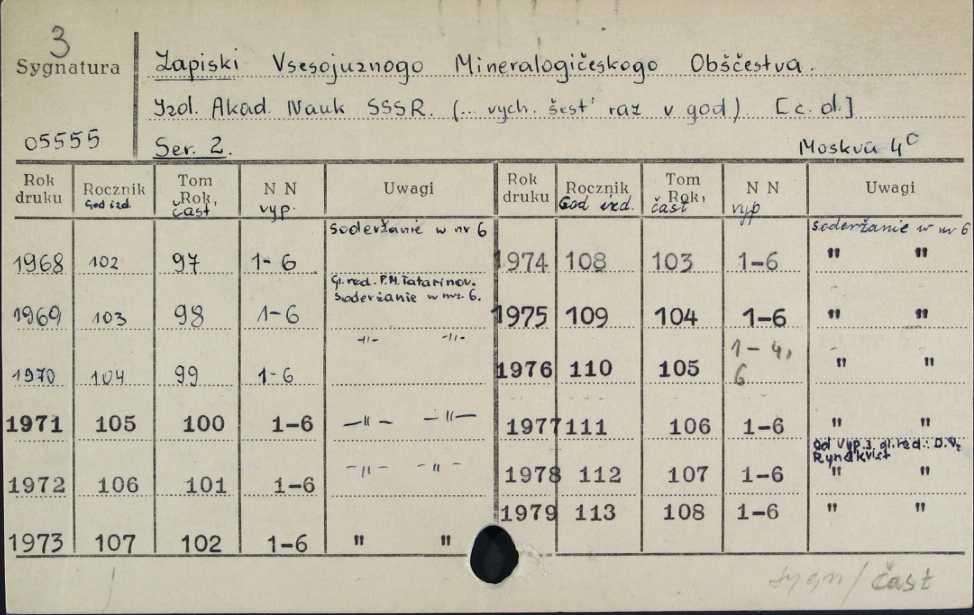 3
Sygnatura
05555
Zapiski Vsesojuznogo Mineralogičeskogo Obščestva.
Izd. Akad. Nauk SSSR. (.. vych. šest' raz v god). [c. d.]
Ser. 2. Moskva 4º
Rok druku Rocznik God izd. Tom Rok, čast N N vyp. Uwagi
Soderžanie w nr 6
1968 102 97 1-6
Gl. red. P.M. Tatarinov.
Soderžanie w nr. 6.
1969 103 98 1-6
1970 104 99 1-6 -"- -"-
1971 105 100 1-6 -"- -"-
1972 106 101 1-6 -"- -"-
1973 107 102 1-6 " "
Rok druku Rocznik God izd. Tom Rok, čast N N vyp Uwagi
Soderžanie w nr 6
1974 108 103 1-6 " "
1975 109 104 1-6 " "
1976 110 105 1-4, 6 " "
1977 111 106 1-6 " "
Od vyp. 3. gl. red.: D.V.
Rundkvist
1978 112 107 1-6 " "
1979 113 108 1-6 " "
sygn / čast